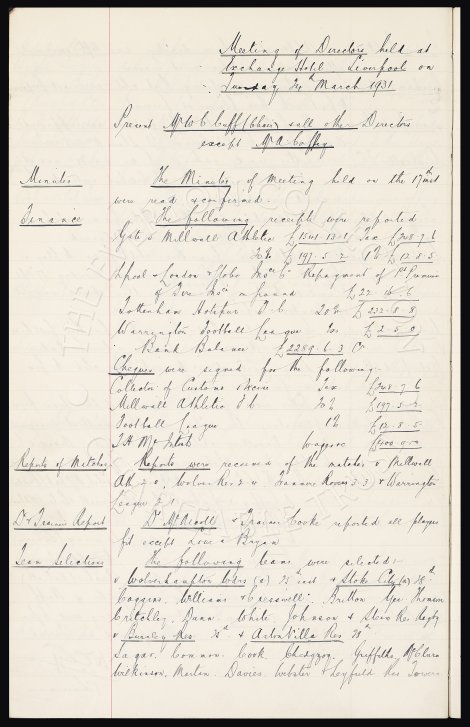 Meeting of Directors held at
Exchange Hotel Liverpool on
Tuesday 24th March 1931
Present Mr W C Cuff (Chair) & all other Directors
except Mr A Coffey
Minutes The Minutes of Meeting held on the 17th inst
were read & confirmed.
Finance The following receipts were reported
Gate v Millwall Athletic Tax £748-7-6
20% £197-5-2 1% £12-8-5
Lpool & London & Globe Repayment of
of Fire
Tottenham Hotspur F.C 20% £232-8-8
Warrington Football League £2-5-0
Bank Balance £2289-6-3 Cr
Cheques were signed for the following.
Collector of Customs & Excise Tax £748-7-6
Millwall Athletic F C 20% £197-5-2
Football League 1% £12-8-5
T.H. McIntosh wages &c £400-0-0
Reports of Matches Reports were received of the matches v Millwall
Ath 2-0, Wolves Res 2-4 Tranmere Rovers 3-3) & Warrington
League 2-1
Dr & Trainer Report Dr & Trainer Cooke reported all players
fit except Lowe & Bryan
Team Selections The following teams were selected:-
v Wolverhampton Wdrs (a) 25th inst & Stoke City (a) 28th.
Coggins, Williams & Cresswell; Britton Gee Thomson
Critchley, Dunn, White, Johnson & Stein Res. Rigby
v Burnley Res. 25th & Aston Villa Res 28th.
Sagar, Common, Cook, Chedgzoy, Griffiths, McClure
Wilkinson, Martin, Davies, Webster & Leyfield Res Towers